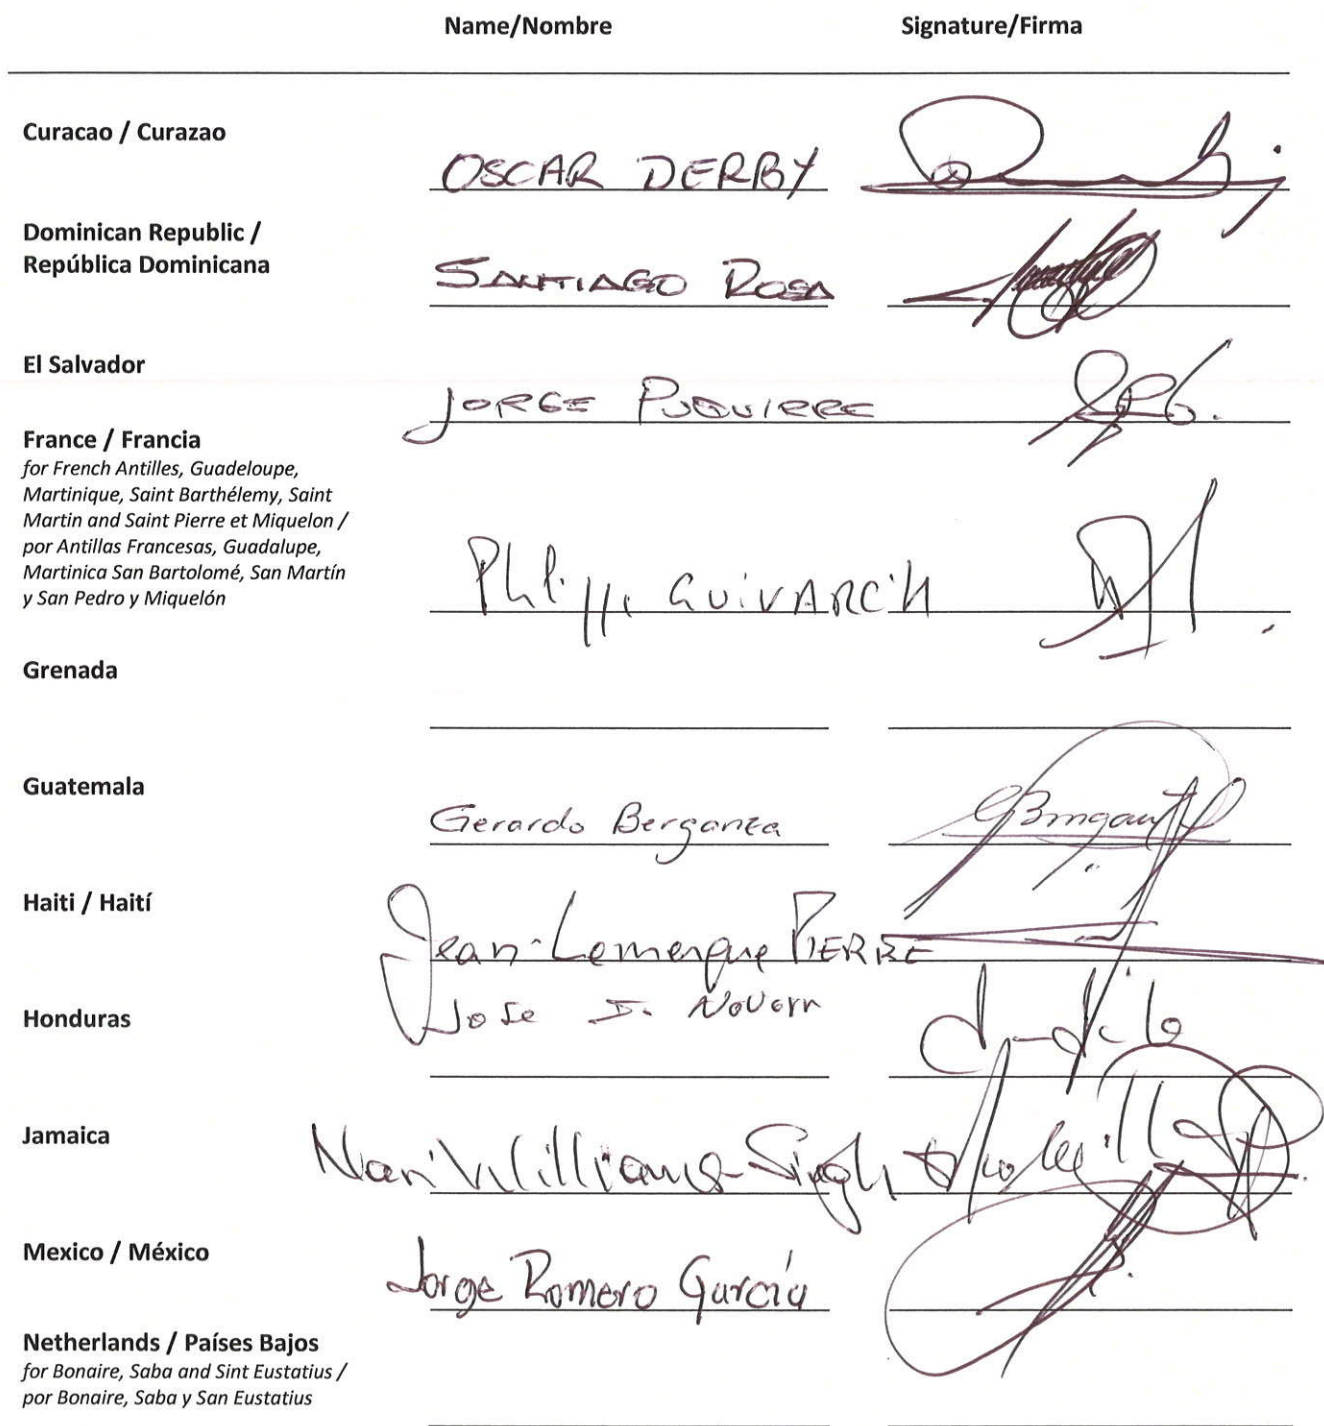 Name/Nombre Signature/Firma
Curacao / Curazao
OSCAR DERBY
Dominican Republic /
República Dominicana
SANTIAGO ROSA
El Salvador
JORGE PUQUIRRE
France / Francia
for French Antilles, Guadeloupe,
Martinique, Saint Barthélemy, Saint
Martin and Saint Pierre et Miquelon /
por Antillas Francesas, Guadalupe,
Martinica San Bartolomé, San Martín
y San Pedro y Miquelón
GUIVARC'H
Grenada
Guatemala
Gerardo Berganza
Haiti / Haití
Jean-Lemerque PIERRE
Honduras
Jose
Jamaica
Nari Williams-Singh
Mexico / México
Jorge Romero García
Netherlands / Países Bajos
for Bonaire, Saba and Sint Eustatius /
por Bonaire, Saba y San Eustatius